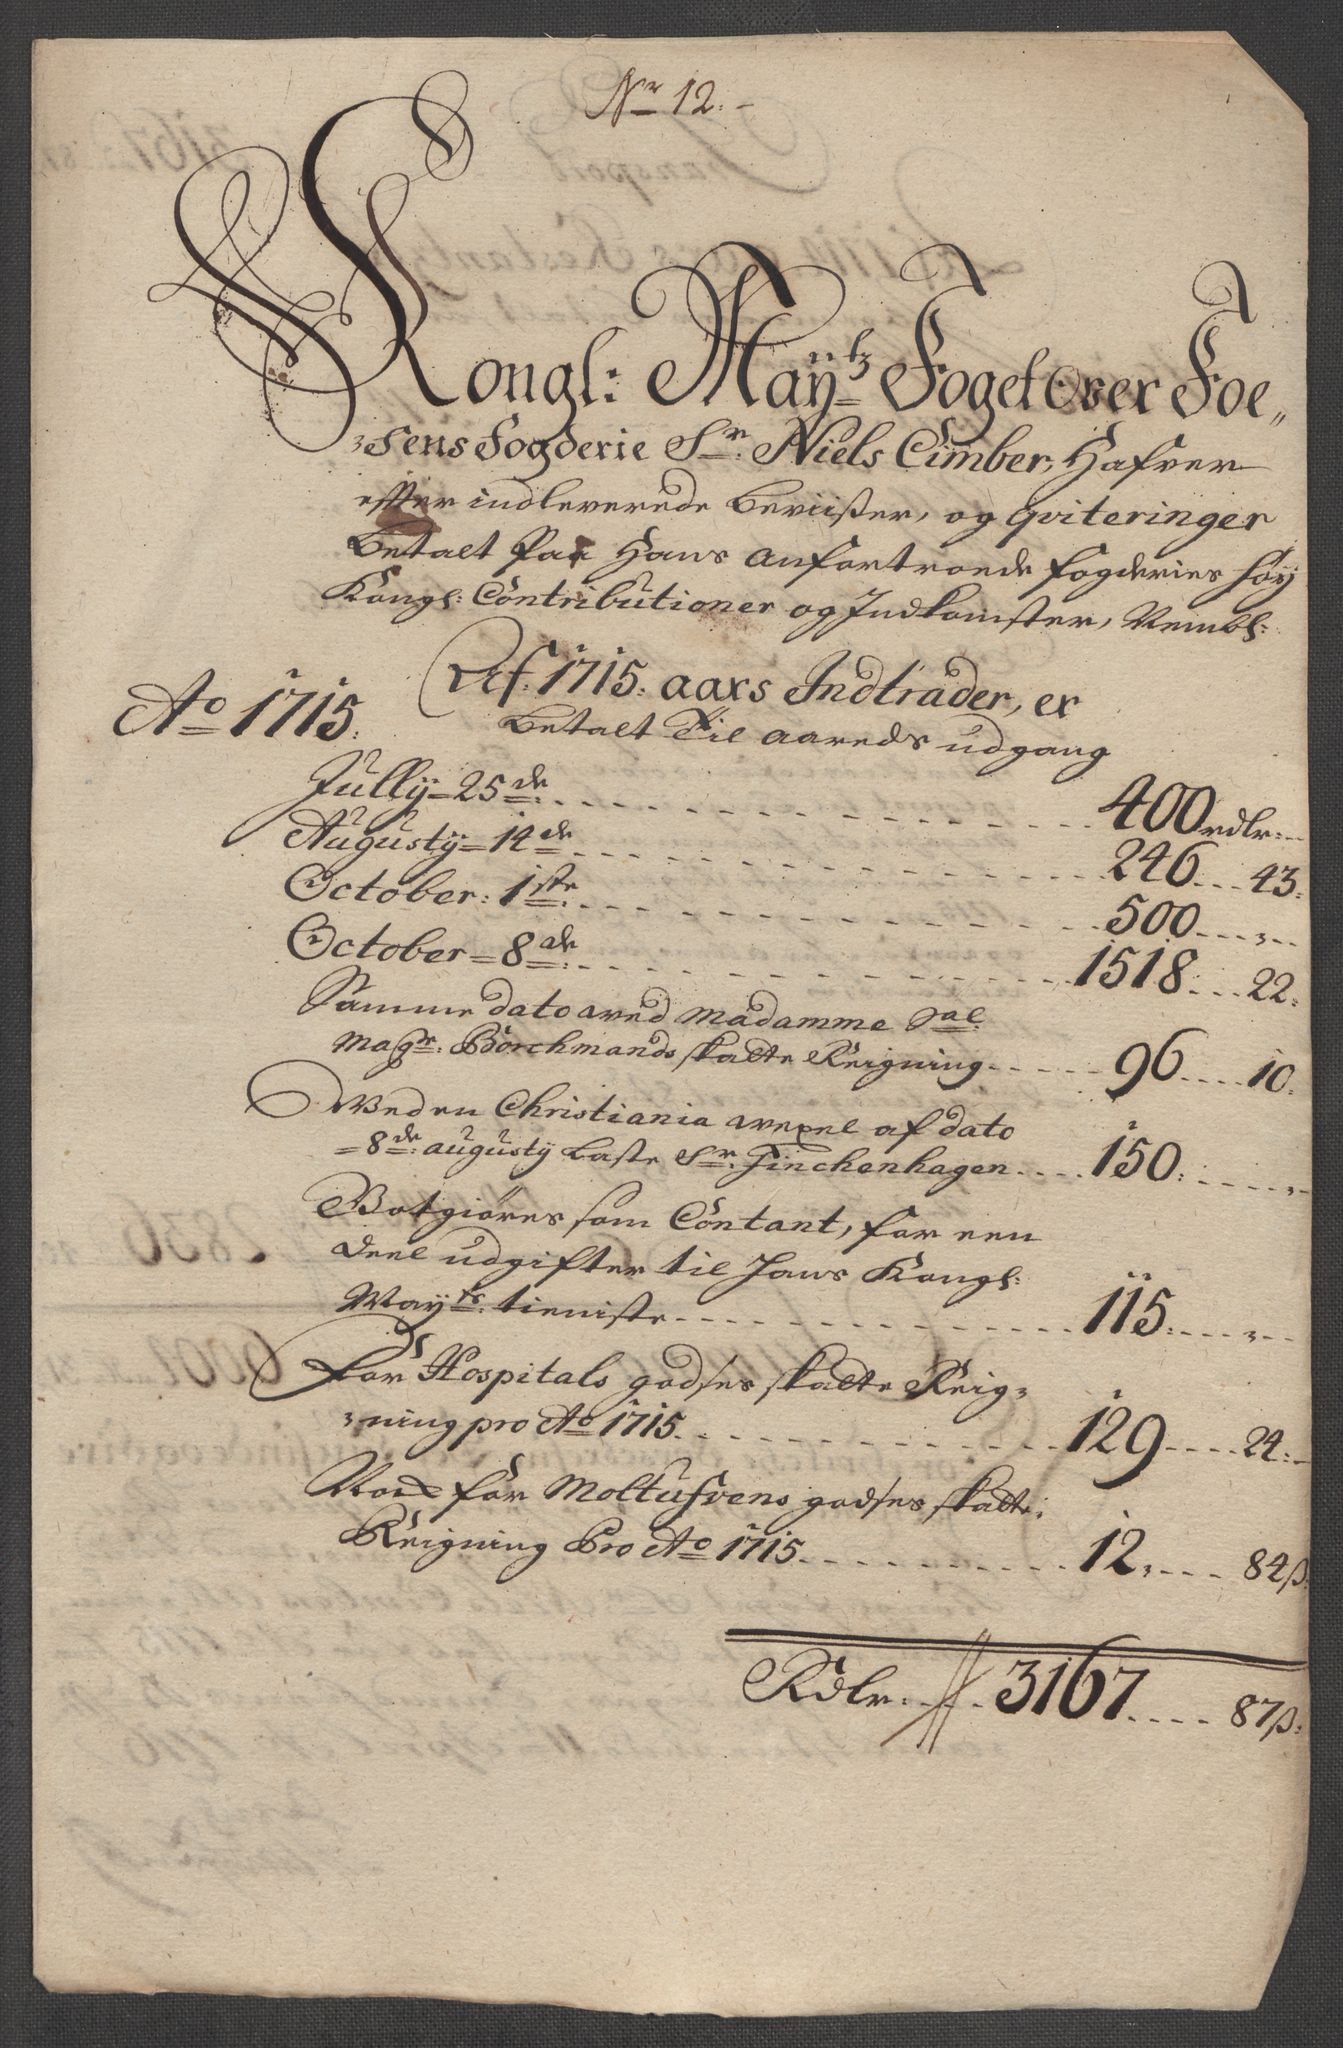 Nr 12.
Kongl: Maÿtz Foget over Foe„
sens Fogderie Sr. Niels Cimber, Hafver
effter indleverede beviister, og qviteringer
betalt Paa Hans anfortroede fogderies høy
Kongl: Contributioner og Indkomster, Nembl:
Af 1715. aars Indtrader, er
Ao 1715.
betalt Til aareds udgang
Jullÿ = 25de 400 rdlr:
Augustÿ = 14de 246 43:
October: 1ste 500
October = 8de 1518 22:
Samme dato med Madamme Sal.
Magr. Borchmands skatte Reigning 96 10:
Med en Christiania wexel af dato
= 8de augustÿ laste Sr. Finchenhagen 150:
Botgiøres som Contant, for een
deel udgifter til Hans Kongl:
Mayts. tieniste 115.
For Hospitals godses skatte Reig=
=ning pro Ao 1715. 129 24:
Nock for Moltufvens godses skatte
Reigning Pro Ao 1715. 12 84ß:
Rdlr. 3167 87ß: